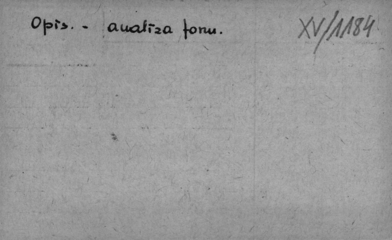 Opis. - analiza form.
XV/1184